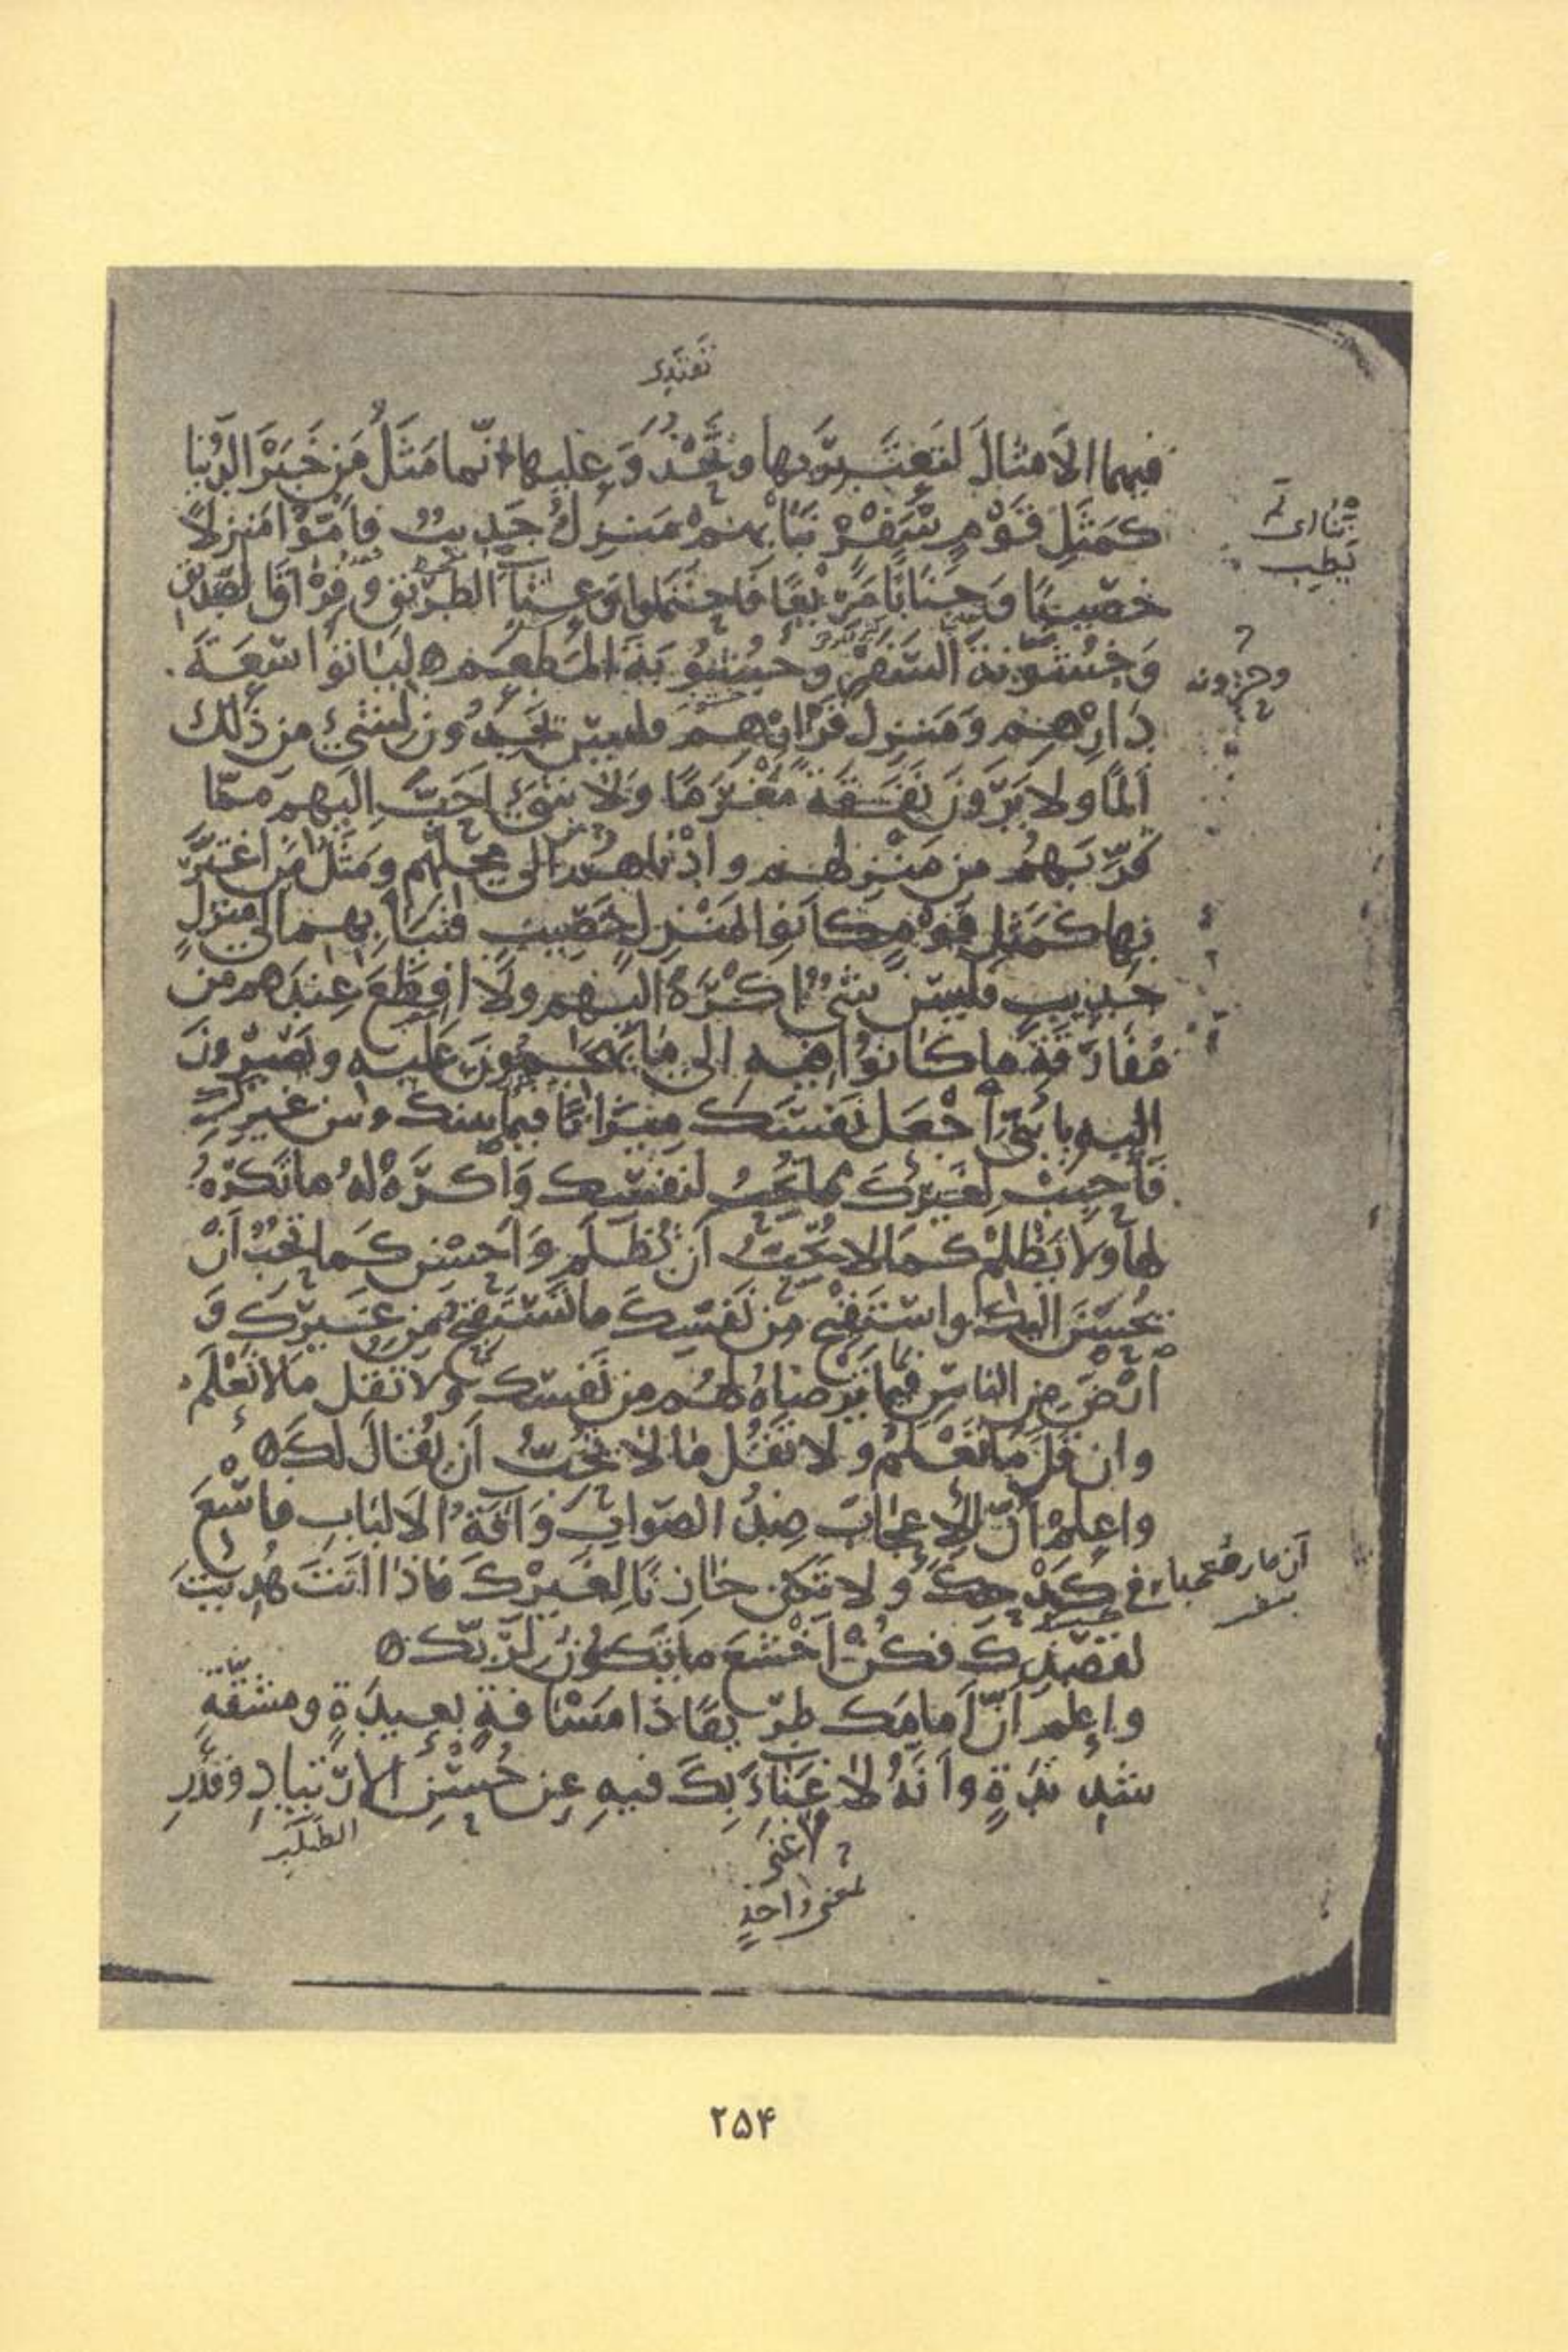 تقتدى
فيهما الأمثالَ لتعتبر بها وتحذو عليها انّما مَثَلُ مَن خَبَرَ الدُّنيا
كمَثَلِ قَوْمٍ سَفْرٍ نَبَا بهم مَنزِلٌ جَديبٌ فأمّوا مَنزِلاً
نبا اى لم
يَطِب
خَصيبًا وجَنابًا مَريعًا فاحتملوا وَعثاءَ الطريق وفِراقَ الصّديق
وخُشونةَ السّفرِ وجُشوبةَ المَطعَم ليأتوا سَعَةَ
وحزونه
دارِهم ومَنزِلَ قَرارِهم فليس يجدون لشىءٍ من ذلك
ألمًا ولا يَرَونَ نَفَقةً مَغرَمًا ولا شىءَ احَبُّ اليهم ممّا
قرّبهم من مَنزِلهم وادْناهم الى محلّهم ومَثَلُ مَن اغترَّ
بها كمَثَلِ قومٍ كانوا بمَنزِلٍ خَصيبٍ فنَبا بهم الى منزلٍ
جديبٍ فليس شىءٌ اكْرَهَ اليهم ولا افظَعَ عندهم من
مُفارَقةِ ما كانوا فيه الى ما يَهجمونَ عليه ويَصيرونَ
اليه يا بُنىّ اجْعَل نَفسَك ميزانًا فيما بينك وبين غيرك
فأحبِبْ لغيرك ما تُحبُّ لنفسِك وَاكرَهْ له ما تَكرَهُ
لها ولا تَظلِمْ كما لا تُحبُّ أن تُظلَم وَأحسِن كما تحبُّ أنْ
يُحسَنَ اليك واستقبِح مِن نَفسِك ما تَستقبِحُ من غيرِك وَ
ارْضَ من الناس بما تَرضاهُ لهم من نَفسِك ولا تقل ما لا تَعْلَم
وان قَلَّ ما تَعْلَمُ ولا تَقُل ما لا تُحِبُّ أن يُقالَ لكَ ه
واعلمْ أنّ الإعجابَ ضِدُّ الصّوابِ وَآفةُ الألبابِ فاسْعَ
فى كَدْحِكَ ولا تكن خازِنًا لغيرك فاذا انتَ هُديتَ
لقصدِك فكُنْ أخْشعَ ما تكونُ لرَبِّك ه
واعلم أنّ أمامَك طريقًا ذا مَسافةٍ بعيدةٍ ومشقّةٍ
شديدةٍ وأنّهُ لا غَناءَ بِكَ فيهِ عن حُسنِ الارتيادِ وقَدْرِ
الطلب
لا غنى
بمعنى واحدٍ
۲۵۴